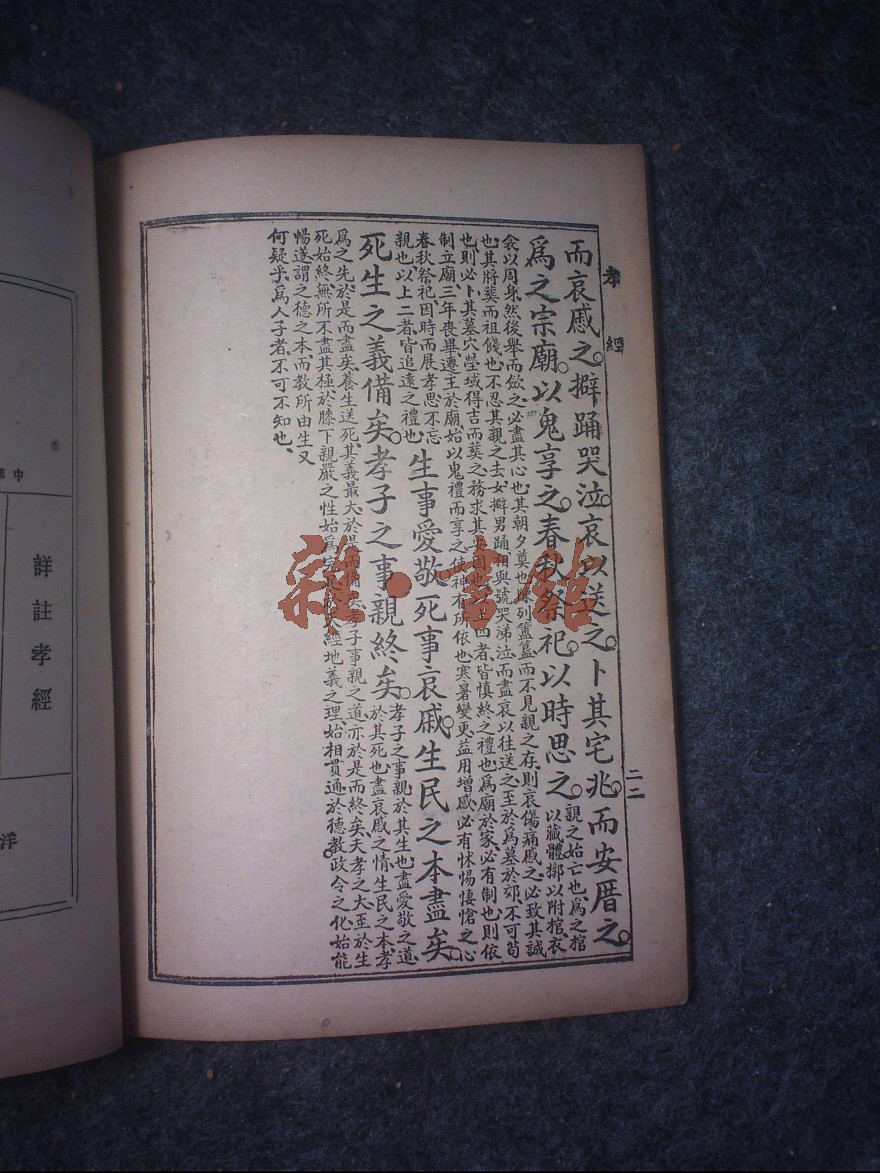 孝經
二二
而哀戚之。擗踊哭泣。哀以送之。卜其宅兆。而安厝之。
爲之宗廟。以鬼享之。春秋祭祀。以時思之。
親之始亡也、爲之棺
以藏體、槨以附棺、衣
衾以周身、然後舉而斂之、必盡其心也、其朝夕奠也、陳列簠簋、而不見親之存、則哀傷痛戚之、必致其誠
也、其將葬而祖餞也、不忍其親之去、女擗男踊、相與號哭涕泣、而盡哀以往送之、至於爲墓於郊、不可苟
也、則必卜其墓穴塋域、得吉而葬之、務求其安固也、以上四者、皆慎終之禮也、爲廟於家、必有制也、則依
制立廟、三年喪畢、遷主於廟、始以鬼禮而享之、使神有所依也、寒暑變更、益用增感、必有怵惕悽愴之心、
春秋祭祀、因時而展孝思、不忘
親也、以上二者、皆追遠之禮也、
生事愛敬。死事哀戚。生民之本盡矣。
死生之義備矣。孝子之事親終矣。
孝子之事親、於其生也、盡愛敬之道、
於其死也、盡哀戚之情、生民之本、孝
爲之先、於是而盡矣、養生送死、其義最大、於是而備矣、孝子事親之道、亦於是而終矣、夫孝之大、至於生
死始終、無所不盡其極、於膝下親嚴之性、始爲經地義之理、始相貫通、於德教政令之化、始能
暢遂、謂之德之本、而教所由生、又
何疑乎、爲人子者、不可不知也、
詳註孝經
中
洋
雜·書館